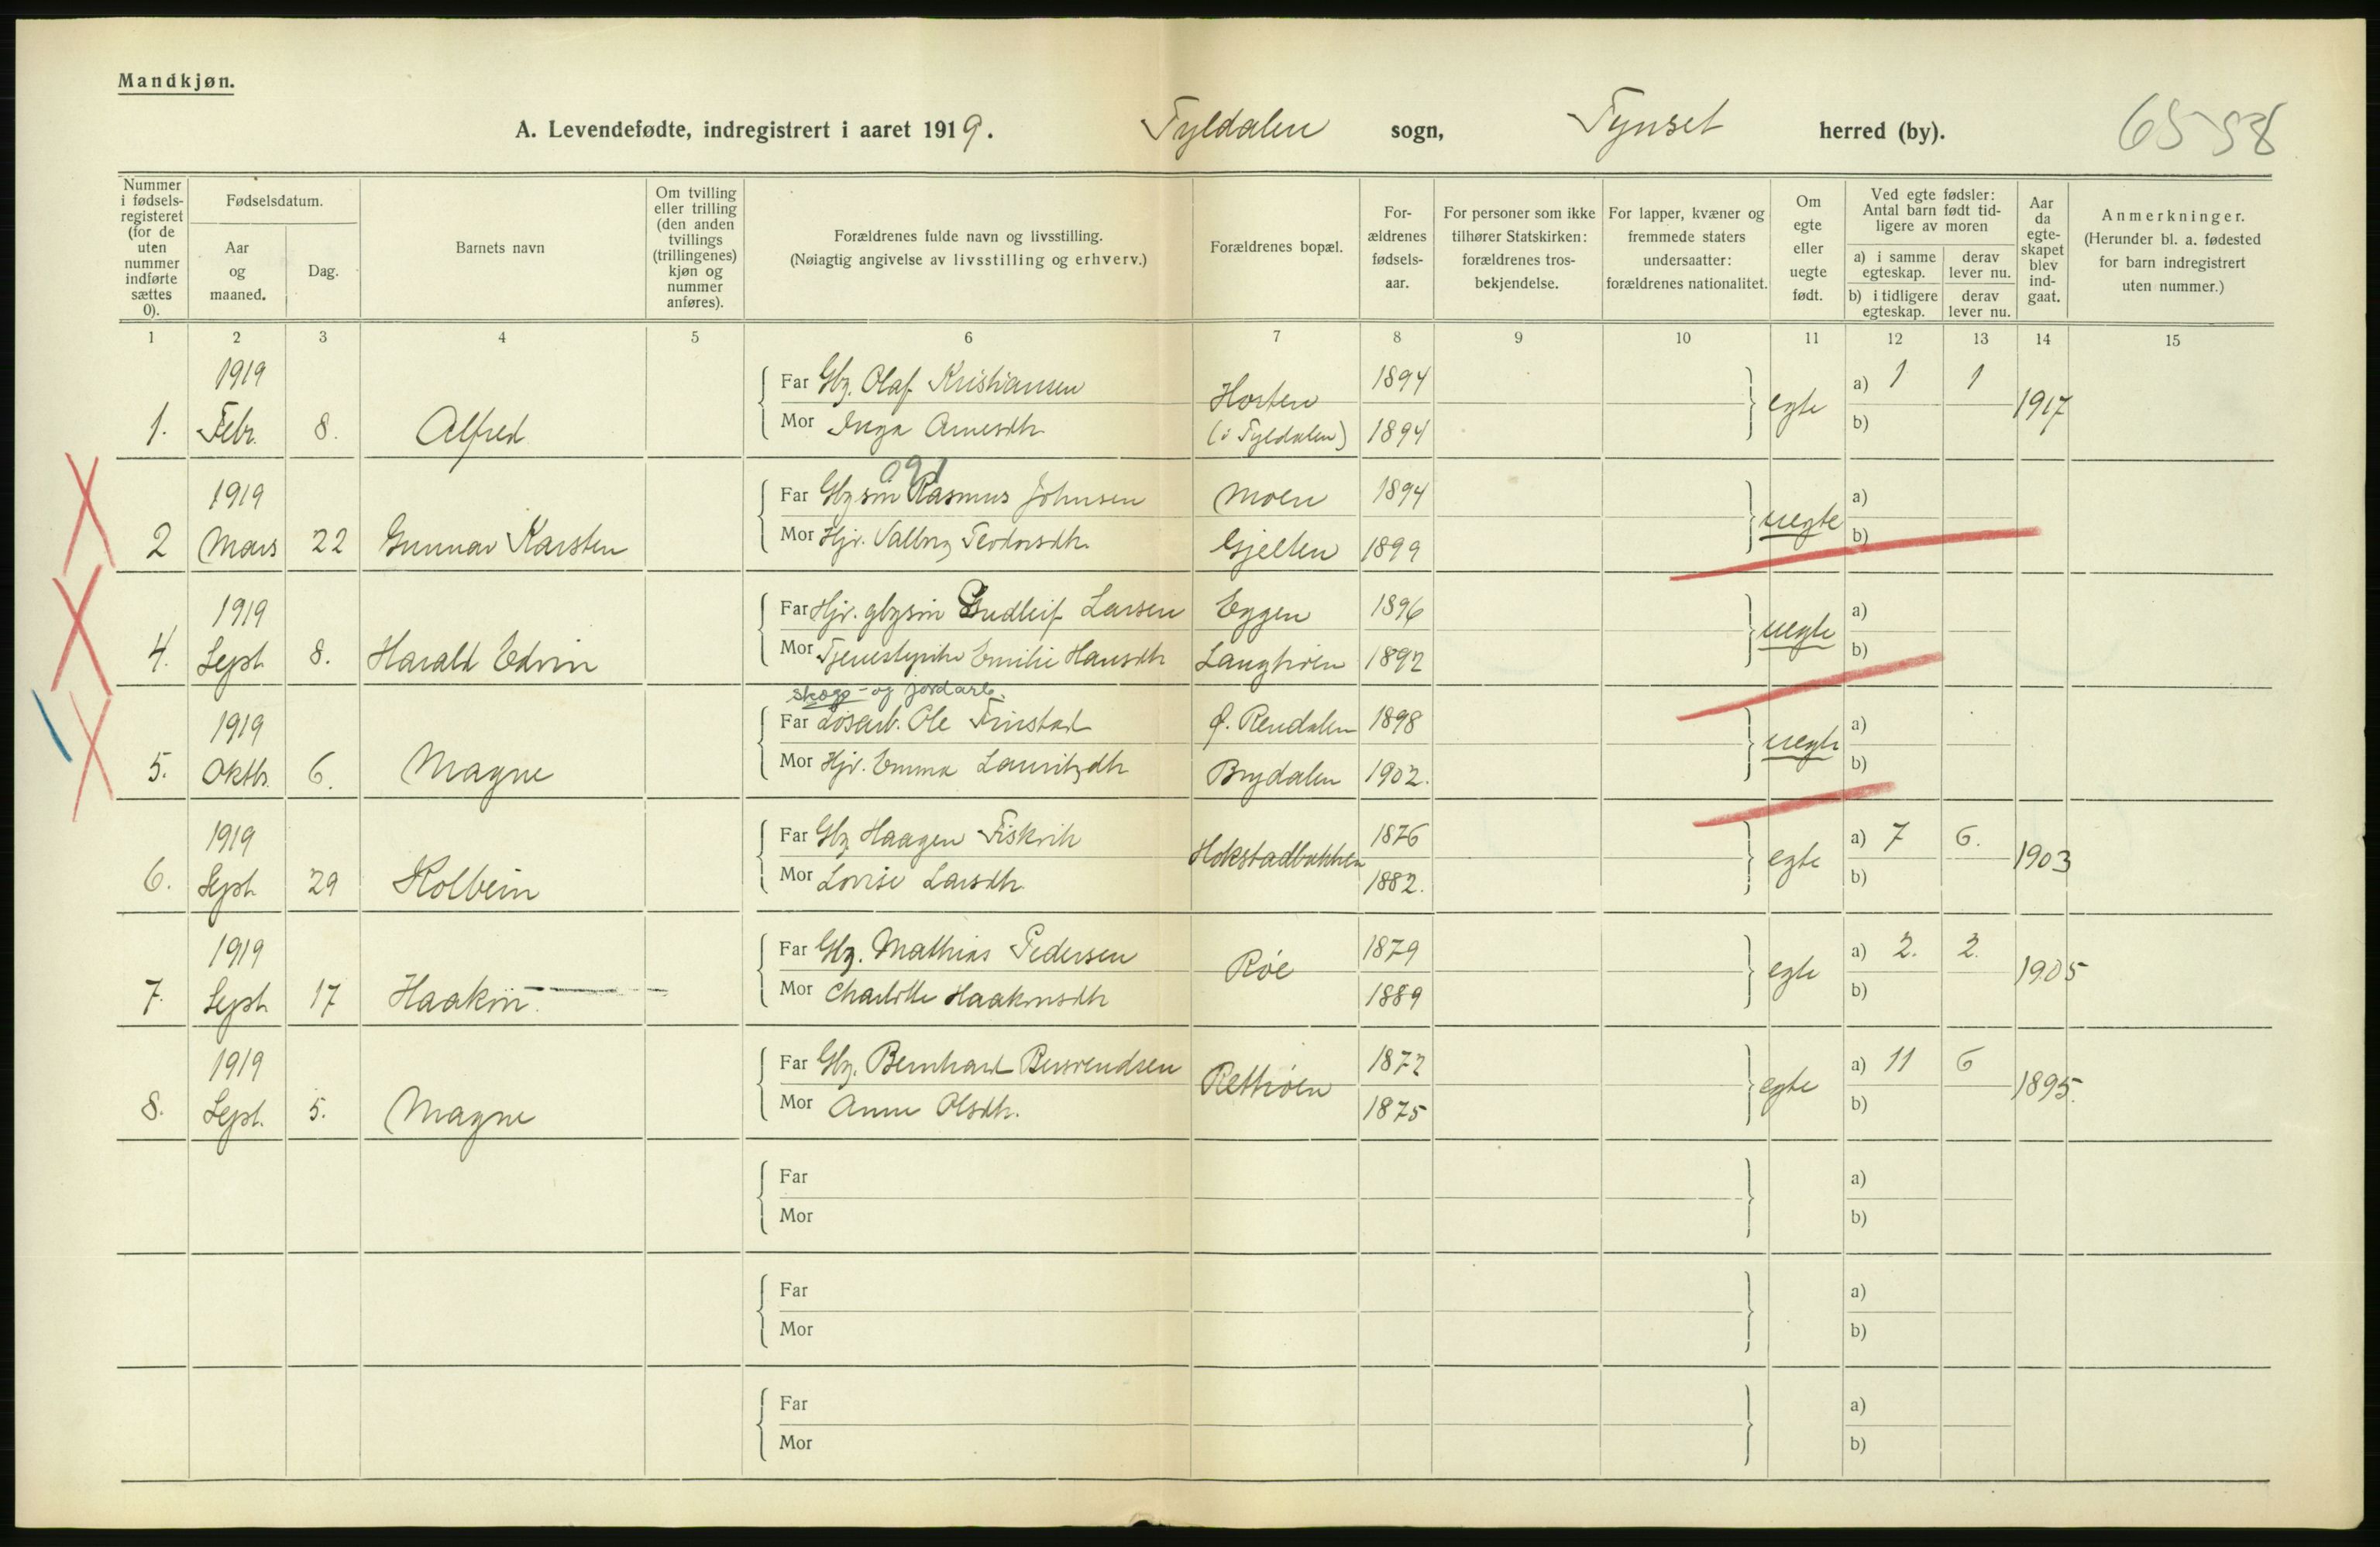 Mandkjøn.
A. Levendefødte, indregistrert i aaret 1919. Tyldalen sogn, Tynset herred (by). 6558
Nummer i fødsels-registeret (for de uten nummer indførte sættes 0).
Fødselsdatum.
Aar og maaned.
Dag.
Barnets navn
Om tvilling eller trilling (den anden tvillings (trillingenes) kjøn og nummer anføres).
Forældrenes fulde navn og livsstilling.
(Nøiagtig angivelse av livsstilling og erhverv.)
Forældrenes bopæl.
For-ældrenes fødsels-aar.
For personer som ikke tilhører Statskirken: forældrenes tros-bekjendelse.
For lapper, kvæner og fremmede staters undersaatter: forældrenes nationalitet.
Om egte eller uegte født.
Ved egte fødsler: Antal barn født tid-ligere av moren
a) i samme egteskap. derav lever nu.
b) i tidligere egteskap. derav lever nu.
Aar da egte-skapet blev ind-gaat.
Anmerkninger.
(Herunder bl. a. fødested for barn indregistrert uten nummer.)
1 2 3 4 5 6 7 8 9 10 11 12 13 14 15
1919 Far Gbr. Olaf Kristiansen Horten 1894 a) 1 1
1. Febr. 8. Alfred Mor Inga Arnesdtr. (i Tyldalen) 1894 egte b) 1917
1919 Far Gbr søn Rasmus Johnsen Moen 1894 a)
2 Mars 22 Gunnar Karsten Mor Hjv. Valborg Teodorsdtr. Gjelten 1899 uegte b)
1919 Far Hjv. gbrsøn Gudleif Larsen Eggen 1896 a)
4. Sept. 8. Harald Edvin Mor Tjenestepike Emilie Hansdtr Langhøen 1892 uegte b)
skogs- og jordarb.
1919 Far Løsarb. Ole Finstad Ø. Rendalen 1898 a)
5. Oktb. 6. Magne Mor Hjv. Emma Lauritzdtr Brydalen 1902. uegte b)
1919 Far Gbr Haagen Fiskvik Hokstadbakken 1876 a) 7 6.
6. Sept. 29 Kolbein Mor Lovise Larsdtr. 1882. egte b) 1903
1919 Far Gbr. Mathias Pedersen Røe 1879 a) 2. 2.
7. Sept 17 Haakon Mor Charlotte Haakonsdtr 1889 egte b) 1905
1919 Far Gbr. Bernhard Bersvendsen Rethøen 1872 a) 11 6
8. Sept. 5. Magne Mor Anne Olsdtr. 1875 egte b) 1895.
Far a)
Mor b)
Far a)
Mor b)
Far a)
Mor b)